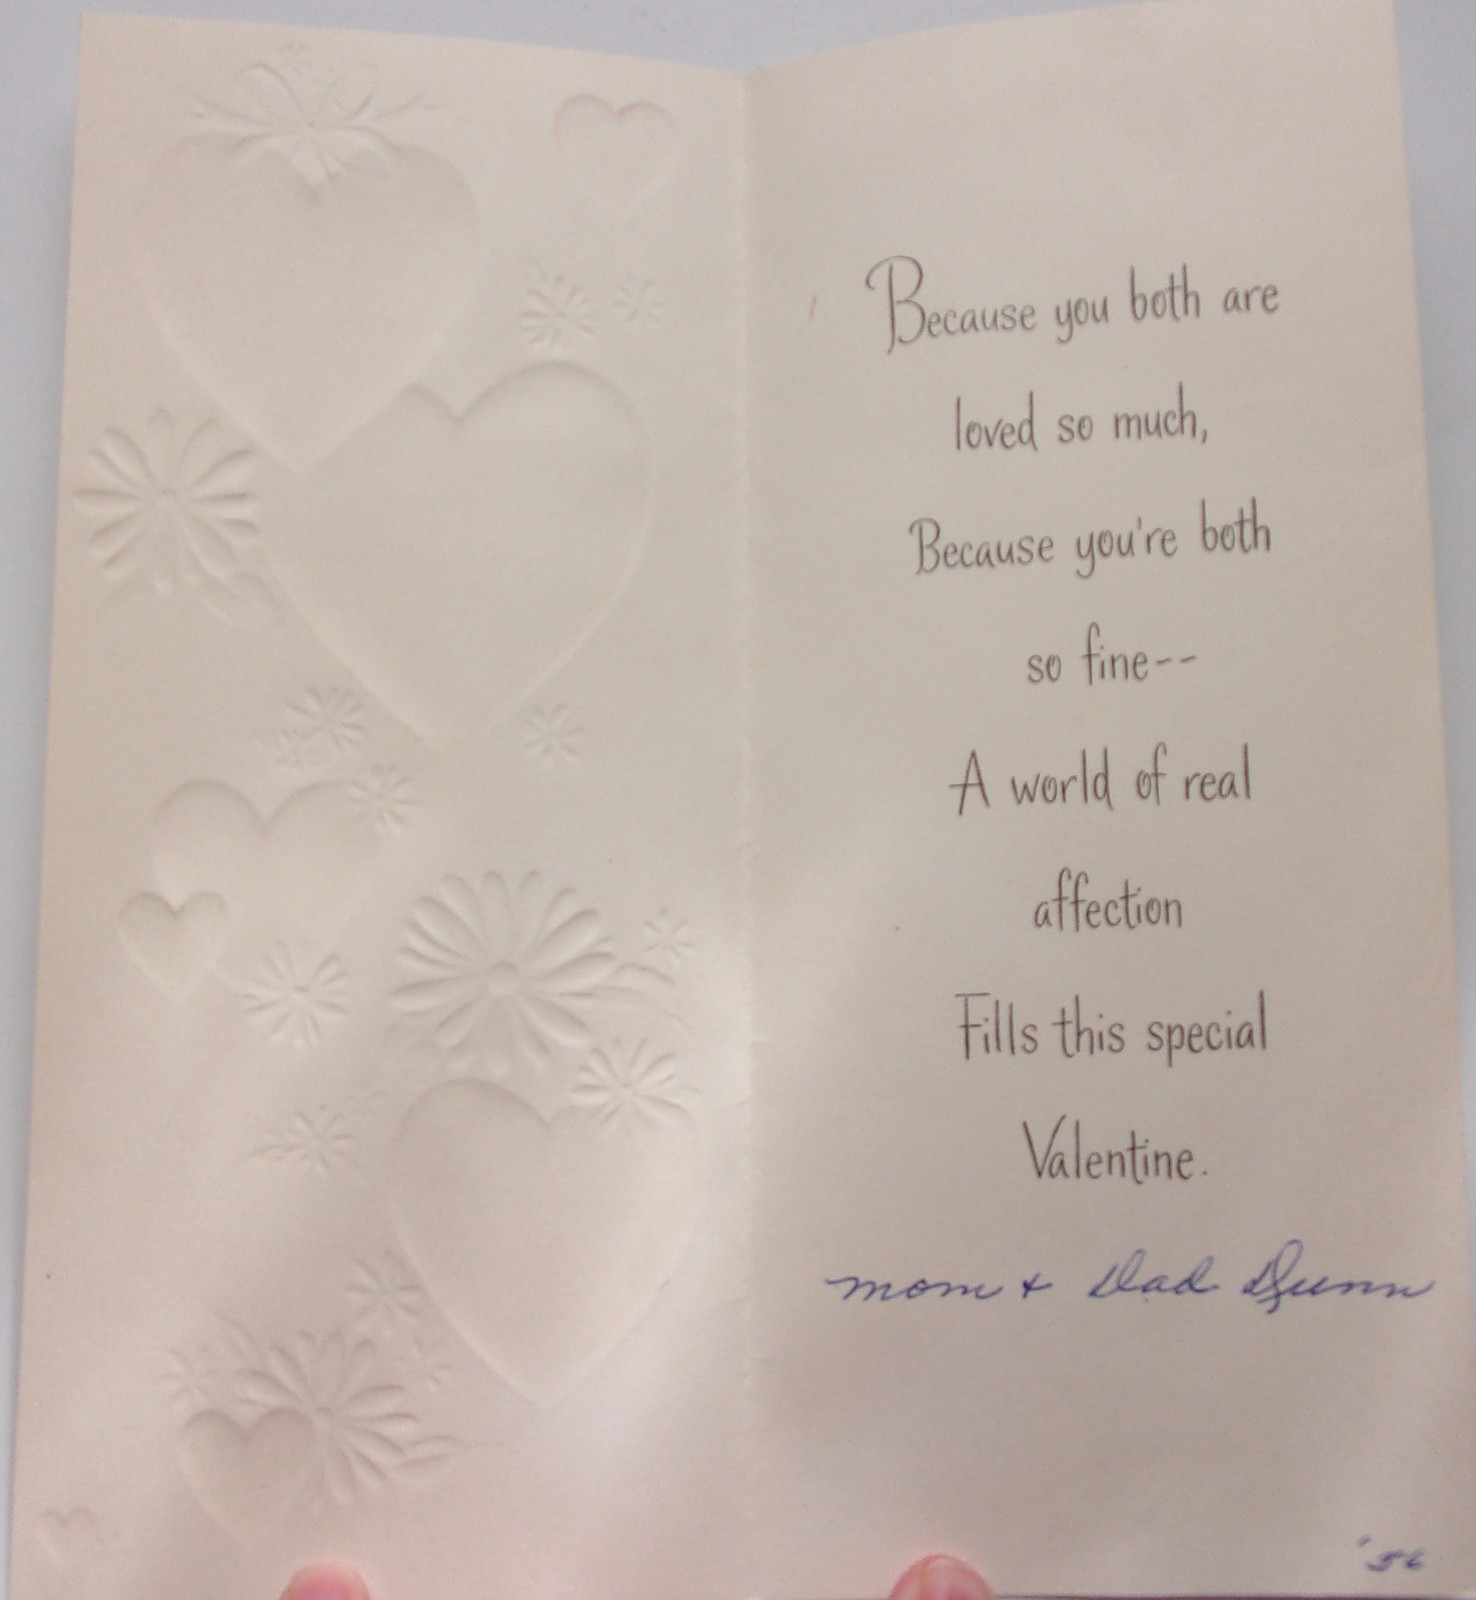 Because you both are
loved so much,
Because you're both
so fine--
A world of real
affection
Fills this special
Valentine.
mom & Dad Dunn
'56